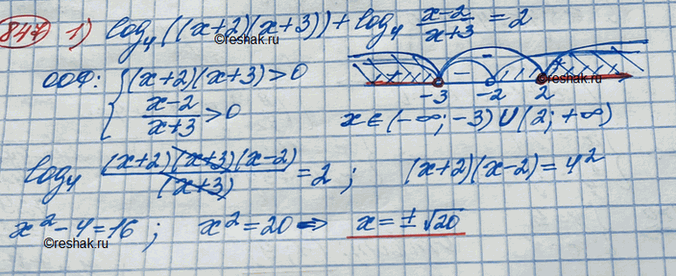 847 1) log₄((x+2)(x+3)) + log₄ (x-2)/(x+3) = 2
©reshak.ru
ООФ: { (x+2)(x+3)>0
(x-2)/(x+3) >0
+ - +
-3 -2 2
x∈(-∞;-3)∪(2;+∞)
log₄ (x+2)(x+3)(x-2)/(x+3) = 2; (x+2)(x-2)=4²
©reshak.ru
x²-4=16; x²=20 ⇒ x=±√20
©reshak.ru